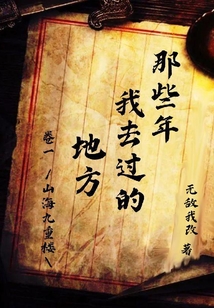 那些年
我去过的
地方
卷一/山海九重楼\
无敌我改 著